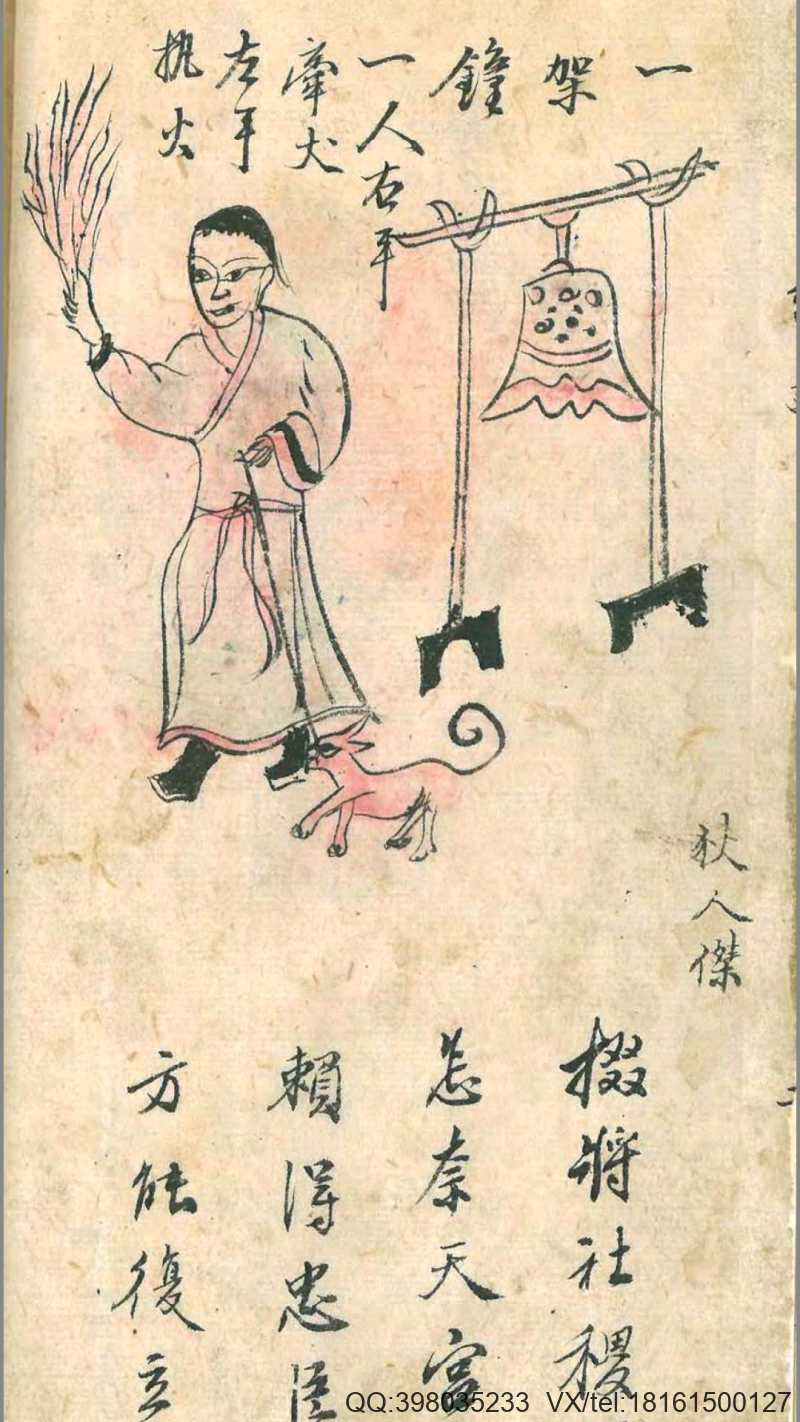 一架鐘
一人右手
牽犬
左手
執火
狄人傑
掇將社稷
怎奈天宮
賴得忠臣
方能復立
QQ:398035233 VX/tel:18161500127